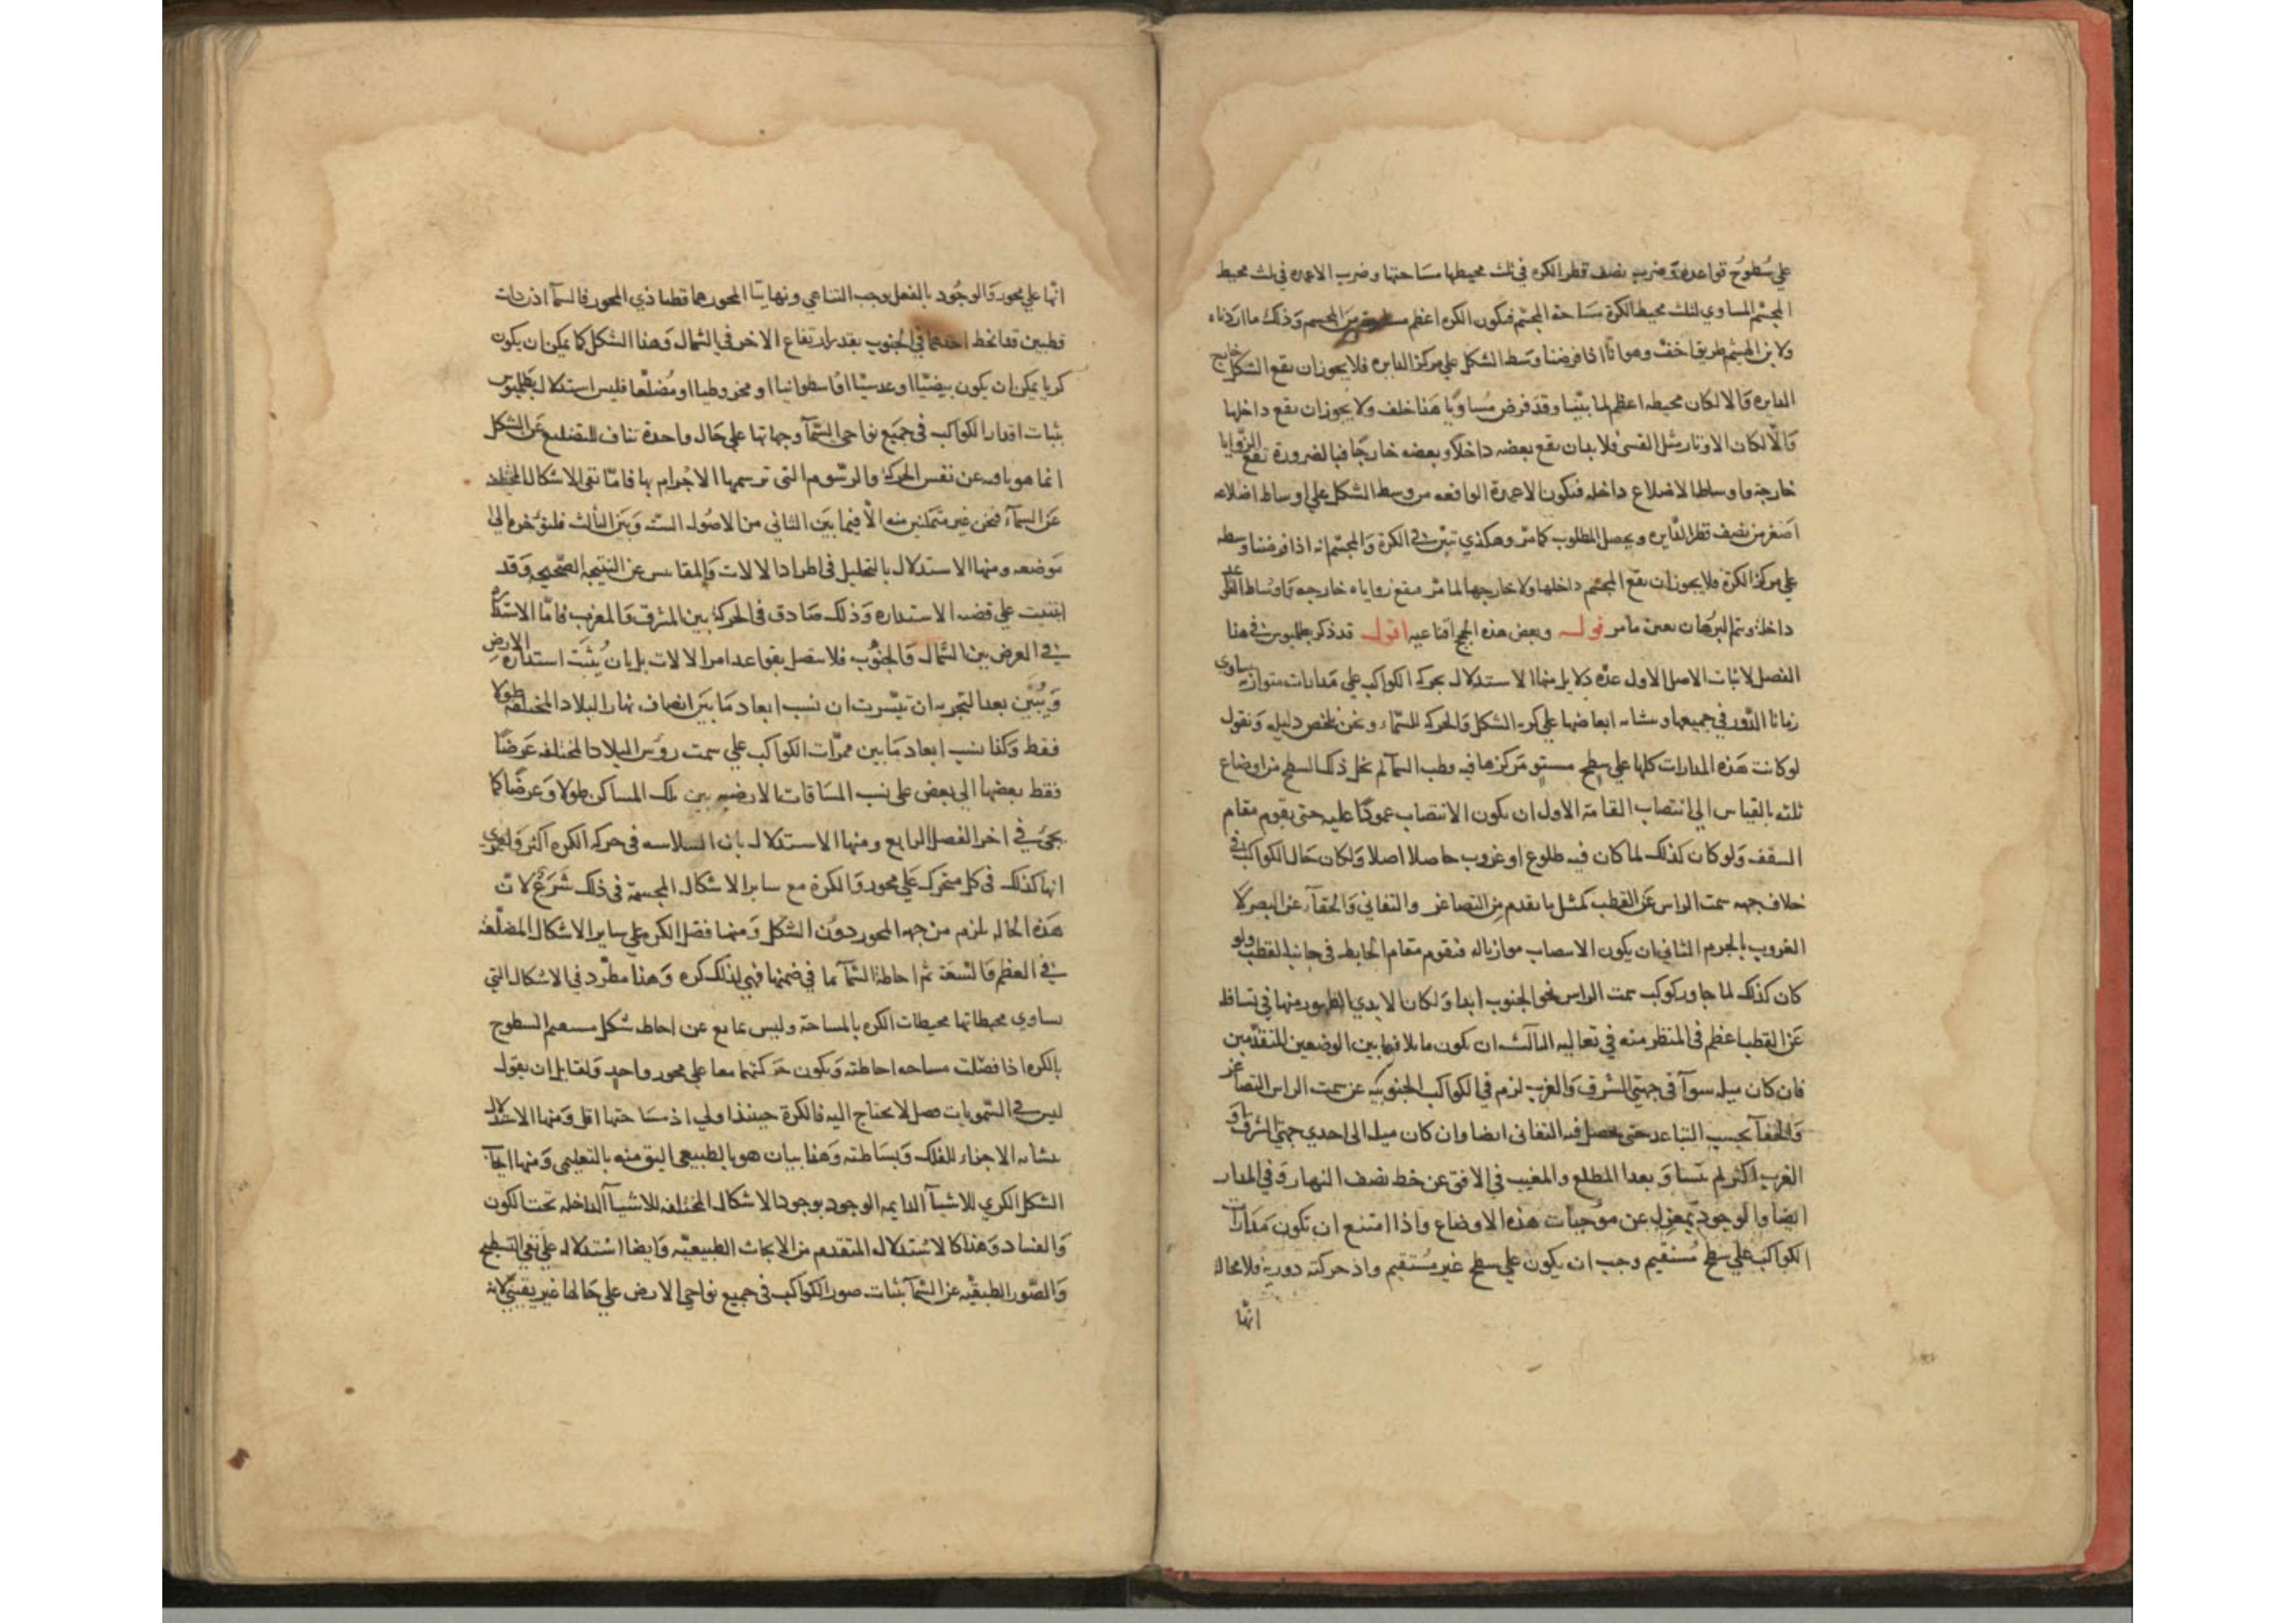 علي سُطوُح قواعده وضرب نصف قطر الكره في ثلث محيطها مسَاحتها وضرب الاعمده في ثلث محيط
المجسّم المساوي لثلث محيط الكرة مسَاحة المجسّم فيكون الكره اعظم من المجسم وَذلك ما اردناه
ولابن الهيثم طريق اخفّ وهو انّا اذا فرضنا وسَط الشكل علي مركز الدايره فلا يجوز ان يقع الشكل خارج
الدايره وَالا لكان محيطه اعظم لما بيّنا وقدَ فرض مُساويًا هَذا خلف ولا يجوز ان يقع داخلها
وَالّا لكان الاوتار مثل القسي فلا بد ان يقع بعضه داخلًا وبعضه خارجًا فبالضرورة تقع الزّوايا
خارجة واوساط الاضلاع داخله فتكون الاعمدة الواقعه من وسط الشكل علي اوساط اضلاعه
اصَغر من نصف قطر الدّايره ويحصل المطلوب كما مرّ وهكذي تبيّن في الكرة وَالمجسّم انه اذا فرضنا وسطه
علي مركز الكرة فلا يجوز ان يقع المجسّم داخلها ولا خارجها لما مرّ فيقع زواياه خارجه وَاوسَاط
داخلة ويتم البرُهان بعين ما مر قولـه وبعض هذه الحجج اقناعيه اقول قد ذكر بطلميوس في هذا
الفصل لاثبات الاصل الاول عدّه دَلايل منها الاستدلال بحركه الكواكب علي مَدارات متوازيه يساوي
زمانا الدّور في جميعها وتشابه ابعاضها علي كريه الشكل وَالحركه للسّماء ونحن نلخص دليله وَنقول
لو كانت هَذه المدارات كلها علي سطح مستوٍ مَركزها فيه وقطب السمآ لم يخل ذلك السطح من اوضاع
ثلثه بالقياس الي انتصاب القامة الاول ان يكون الانتصاب عمودًا عليه حتى يقوم مقام
السقف وَلو كان كذلك لما كان فيه طلوع او غروب حاصلا اصلا وَلكان حَال الكواكب في
خلاف جهه سمت الراس عَن القطب كمثل ما تقدم مِن التصاغر والتفاني وَالخفآء عن البصر لا
الغروب بالجرم الثاني ان يكون الانتصاب موازيا له فيقوم مقام الحايط في جانب القطب ولو
كان كذلك لما جاور كوكب سمت الراس نحو الجنوب ابدا وَلكان الابدي الظهور منها في تسافله
عَن القطب اعظم في المنظر منه في تعاليه الثالث ان يكون مايلا فيما بين الوضعين المتقدّمين
فان كان ميله سوآ في جهتي الشرق وَالغرب لزم في الكواكب الجنوبيّه عن سمت الراس التصاغر
وَالخفآ بحسب التباعد حتى يحصل فيه التفاني ايضا وان كان ميله الى احدي جهتي الشرق او
الغرب اكثر لم يتساوَ بعدا المطلع والمغيب في الافق عن خط نصف النهار وَفي المدار
ايضا والوجود بمعزل عن موُجبات هَذه الاوضاع واذا امتنع ان تكون مَدَارات
الكواكب علي سطح مُستقيم وجب ان يكون علي سطح غير مُستقيم واذ حركته دورية فلا محاله
انّها
انّها علي محور وَالوجُود بالفعل يوجب التناهي ونهايتا المحور هما قطبا ذي المحور فالسمآ اذن ذات
قطبين قد انحط احدهما في الجنوب بقدر ارتفاع الاخر في الشمال وَهذا الشكل كما يمكن ان يكون
كريا يمكن ان يكون بيضيّا او عدسيّا او اسطوانيا او مخروطيا او مُضلعًا فليس استدلال بطلميوس
بثبات اقدار الكواكب في جميَع نواحي السّمآ وجهاتها علي حَال واحدة تناف للتضليع عَن الشكل
انما هو باق عن نفس الحركة والرسوم التي ترسمها الاجرام بها فامّا نفي الاشكال المختلفه
عَن السمآء فنحن غير متمكنين منه الّا فيما بيَن الثاني من الاصُول الستّه وَبَين الثالث فلنؤخره الي
مَوضعه ومنها الاستدلال بالتحليل في اطراد الالات وَالمقاييس عن النتيجه الصّحيحه وَقد
ابتنيت علي قضيه الاستداره وَذلك صَادق في الحركة بين المشرق وَالمغرب فامّا الاستداره
في العرض بين الشمال وَالجنوُب فلا يتصل بقواعد امر الالات بل بان يُثبَت استدارة الارض
وَيُبَيّن بعد التجربه ان تيسّرت ان نسب ابعاد مَا بَين انصاف نهار البلاد المختلفة طولا
فقط وَكذا نسب ابعاد مَا بين ممرّات الكواكب علي سمت رؤس البلاد المختلفه عَرضًا
فقط بعضها الي بعض علي نسب المسَافات الارضيه بين تلك المساكن طولا وَعرضًا كما
يجئ في اخر الفصل الرابع ومنها الاستدلال بان السلاسه في حركه الكره اكثر وَلعمري
انها كذلك في كل متحرك عَلي محور وَالكرة مع ساير الاشكال المجسمّة في ذلك شَرَعٌ لانّ
هَذه الحاله تلزم من جهه المحور دوُن الشكل وَمنها فضل الكره علي ساير الاشكال المضلّعة
في العظم وَالسّعَة ثم احاطة السّمآ بما في ضمنها فهي لذلك كره وَهذا مطّرد في الاشكال التي
يساوي محيطاتها محيطات الكره بالمساحة وليس بمانع عن احاطه شكل مستقيم السطوح
بالكره اذا فضلت مساحه احاطته وَيكون حَركتهما معا علي محور واحدٍ وَلقايل ان يقول
ليس في السّمويات فضل لا يحتاج اليه فالكرة حينئذ اولي اذ مسَاحتها اقل وَمنها الاستدلال
بتشابه الاجزاء للفلك وَبسَاطته وَهذا بيان هو بالطبيعي اليق منه بالتعليمي وَمنها ايجاب
الشكل الكري للاشيآ الدايمه الوجود بوجود الاشكال المختلفه للاشيآ الداخله تحت الكون
وَالفساد وَهذا كالاستدلال المتقدم من الابحاث الطبيعيّه وَايضا استدلاله علي نفي التسطيح
وَالصّور الطبقيّه عن السّمآ بثبات صور الكواكب في جميع نواحي الارض علي حَالها غير يقينيّ لانه